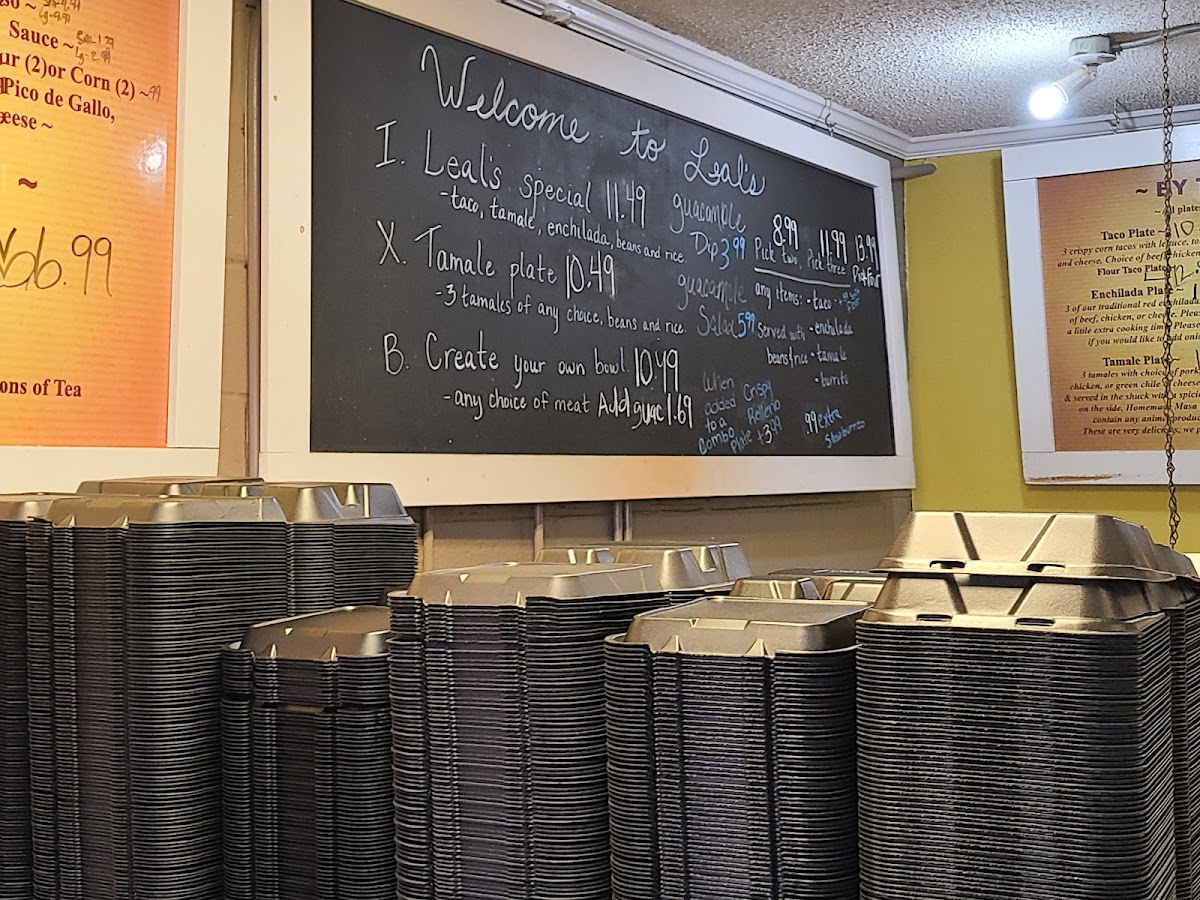 Sauce ~
(2)or Corn (2) ~ 99
Pico de Gallo,
~
~
6.99
ons of Tea
Welcome to Leal's
I. Leal's special 11.49
-taco, tamale, enchilada, beans and rice
X. Tamale plate 10.49
-3 tamales of any choice, beans and rice
B. Create your own bowl 10.49
-any choice of meat Add guac 1.69
guacamole
Dip 3.99
guacamole
Salad 5.99
When
added
to a
Combo
Plate +3.99
Crispy
Relleno
8.99 11.99 13.99
Pick two, Pick three
any items: - taco
Served with - enchilada
beans & rice - tamale
- burrito
.99 extra
~ BY T
~ All plates
Taco Plate ~ 10
3 crispy corn tacos with lettuce, to
and cheese. Choice of beef, chicken
Flour Taco Plate
Enchilada Plate ~
3 of our traditional red enchilada
of beef, chicken, or cheese. Pleas
a little extra cooking time. Please
if you would like to add onio
Tamale Plate ~
3 tamales with choice of pork
chicken, or green chile cheese
& served in the shuck with a spici
on the side. Homemade Masa
contain any animal produc
These are very delicious, we p